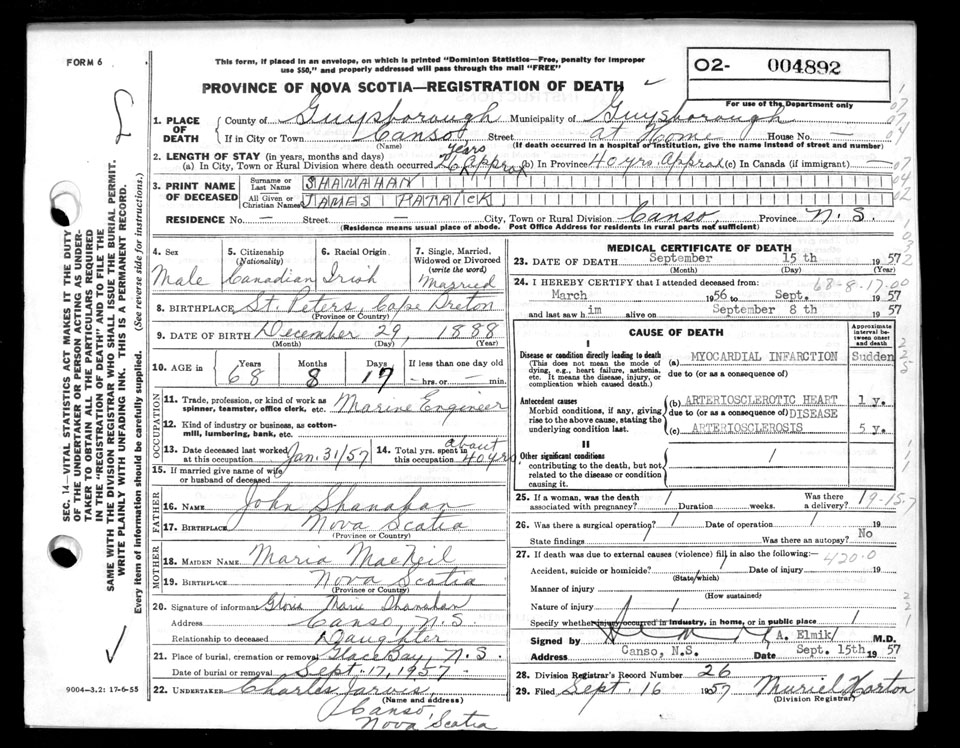 FORM 6
This form, if placed in an envelope, on which is printed "Dominion Statistics—Free, penalty for improper
use $50," and properly addressed will pass through the mail "FREE"
O2- 004892
PROVINCE OF NOVA SCOTIA—REGISTRATION OF DEATH
For use of the Department only
1. PLACE OF DEATH
County of Guysborough Municipality of Guysborough
If in City or Town Canso Street at Home House No. —
(Name) (If death occurred in a hospital or institution, give the name instead of street and number)
2. LENGTH OF STAY (in years, months and days)
(a) In City, Town or Rural Division where death occurred years Approx (b) In Province 40 yrs. Approx (c) In Canada (if immigrant) —
3. PRINT NAME OF DECEASED
Surname or Last Name SHANAHAN
All Given or Christian Names JAMES PATRICK
RESIDENCE No. — Street — City, Town or Rural Division Canso, Province N.S.
(Residence means usual place of abode. Post Office Address for residents in rural parts not sufficient)
4. Sex Male
5. Citizenship (Nationality) Canadian
6. Racial Origin Irish
7. Single, Married, Widowed or Divorced (write the word) Married
8. BIRTHPLACE St. Peters, Cape Breton
(Province or Country)
9. DATE OF BIRTH December 29, 1888
(Month) (Day) (Year)
10. AGE IN Years 68 Months 8 Days 17 If less than one day old — hrs. or — min.
OCCUPATION
11. Trade, profession, or kind of work as spinner, teamster, office clerk, etc. Marine Engineer
12. Kind of industry or business, as cotton-mill, lumbering, bank, etc.
13. Date deceased last worked at this occupation Jan. 31/57
14. Total yrs. spent in this occupation about 40 yrs
15. If married give name of wife or husband of deceased
FATHER
16. NAME John Shanahan
17. BIRTHPLACE Nova Scotia
(Province or Country)
MOTHER
18. MAIDEN NAME Maria MacNeil
19. BIRTHPLACE Nova Scotia
(Province or Country)
20. Signature of informant Gloria Marie Shanahan
Address Canso, N.S.
Relationship to deceased Daughter
21. Place of burial, cremation or removal Glace Bay, N.S.
Date of burial or removal Sept. 17, 1957
22. UNDERTAKER Charles Jarvis,
(Name and address)
Canso,
Nova Scotia
MEDICAL CERTIFICATE OF DEATH
23. DATE OF DEATH September 15 th 1957
(Month) (Day) (Year)
24. I HEREBY CERTIFY that I attended deceased from: 68-8-17-00
March 1956 to Sept. 1957
and last saw him alive on September 8th 1957
CAUSE OF DEATH
Approximate interval between onset and death
I
Disease or condition directly leading to death (a) MYOCARDIAL INFARCTION Sudden
(This does not mean the mode of dying, e.g., heart failure, asthenia, etc. It means the disease, injury, or complication which caused death.)
due to (or as a consequence of)
Antecedent causes (b) ARTERIOSCLEROTIC HEART 1 y.
Morbid conditions, if any, giving rise to the above cause, stating the underlying condition last.
due to (or as a consequence of) DISEASE
(c) ARTERIOSCLEROSIS 5 y.
II
Other significant conditions contributing to the death, but not related to the disease or condition causing it.
25. If a woman, was the death associated with pregnancy? / Duration weeks. Was there a delivery?
19-15-7
26. Was there a surgical operation? / Date of operation / 19
State findings / Was there an autopsy? No
27. If death was due to external causes (violence) fill in also the following:— 420-0
Accident, suicide or homicide? Date of injury 19
(State which)
Manner of injury
(How sustained)
Nature of injury /
Specify whether injury occurred in industry, in home, or in public place /
Signed by A. Elmik M.D.
Address Canso, N.S. Date Sept. 15th 1957
28. Division Registrar's Record Number 26
29. Filed Sept. 16 1957 Muriel Horton
(Division Registrar)
SEC. 14—VITAL STATISTICS ACT MAKES IT THE DUTY
OF THE UNDERTAKER OR PERSON ACTING AS UNDER-
TAKER TO OBTAIN ALL THE PARTICULARS REQUIRED
IN THE "REGISTRATION OF DEATH" AND TO FILE THE
SAME WITH THE DIVISION REGISTRAR WHO SHALL ISSUE THE BURIAL PERMIT.
WRITE PLAINLY WITH UNFADING INK. THIS IS A PERMANENT RECORD.
Every item of information should be carefully supplied. (See reverse side for instructions.)
9004-3.2: 17-6-55